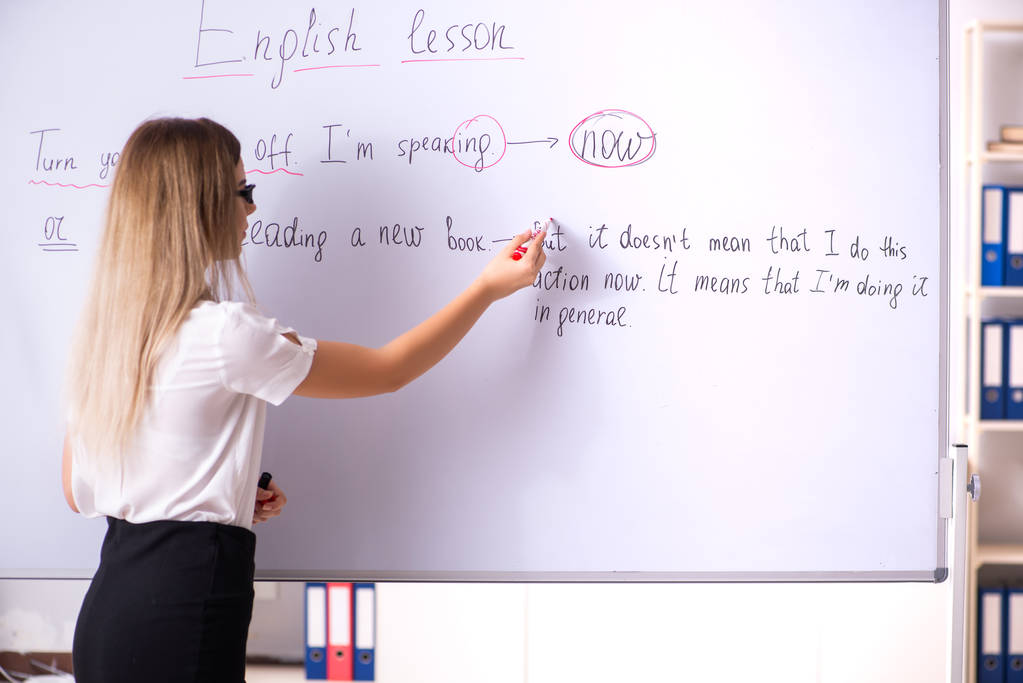 English lesson
Turn off. I'm speaking. → now
or reading a new book. → But it doesn't mean that I do this
action now. It means that I'm doing it
in general.